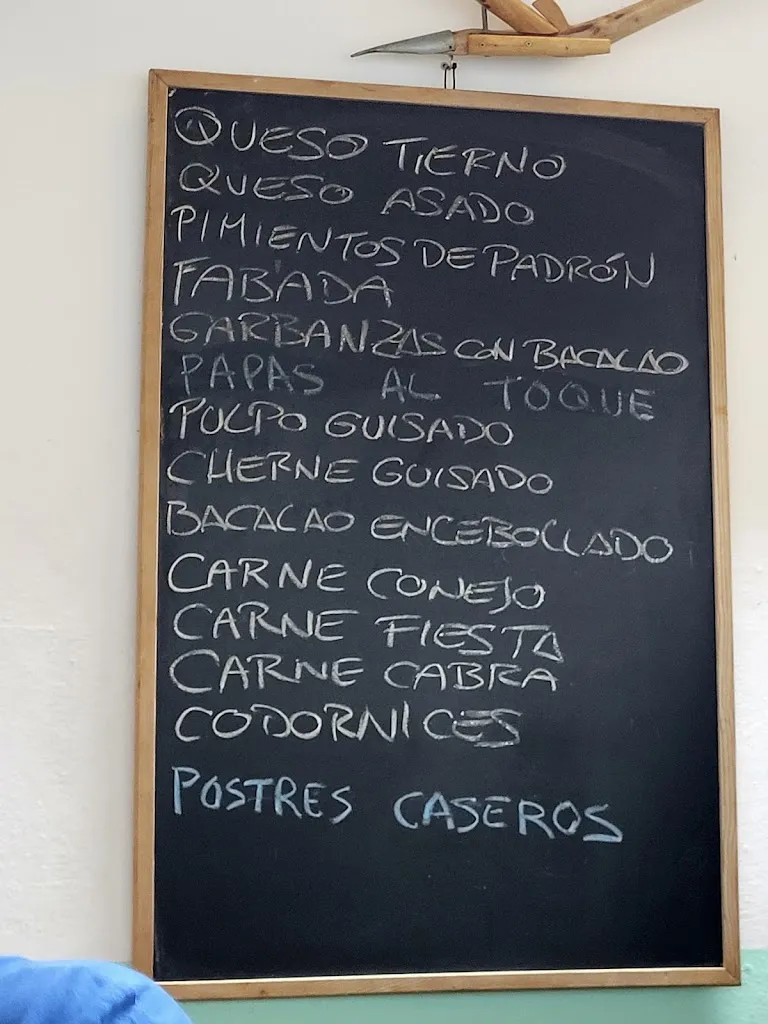 QUESO TIERNO
QUESO ASADO
PIMIENTOS DE PADRÓN
FABADA
GARBANZAS CON BACALAO
PAPAS AL TOQUE
PULPO GUISADO
CHERNE GUISADO
BACALAO ENCEBOLLADO
CARNE CONEJO
CARNE FIESTA
CARNE CABRA
CODORNICES
POSTRES CASEROS